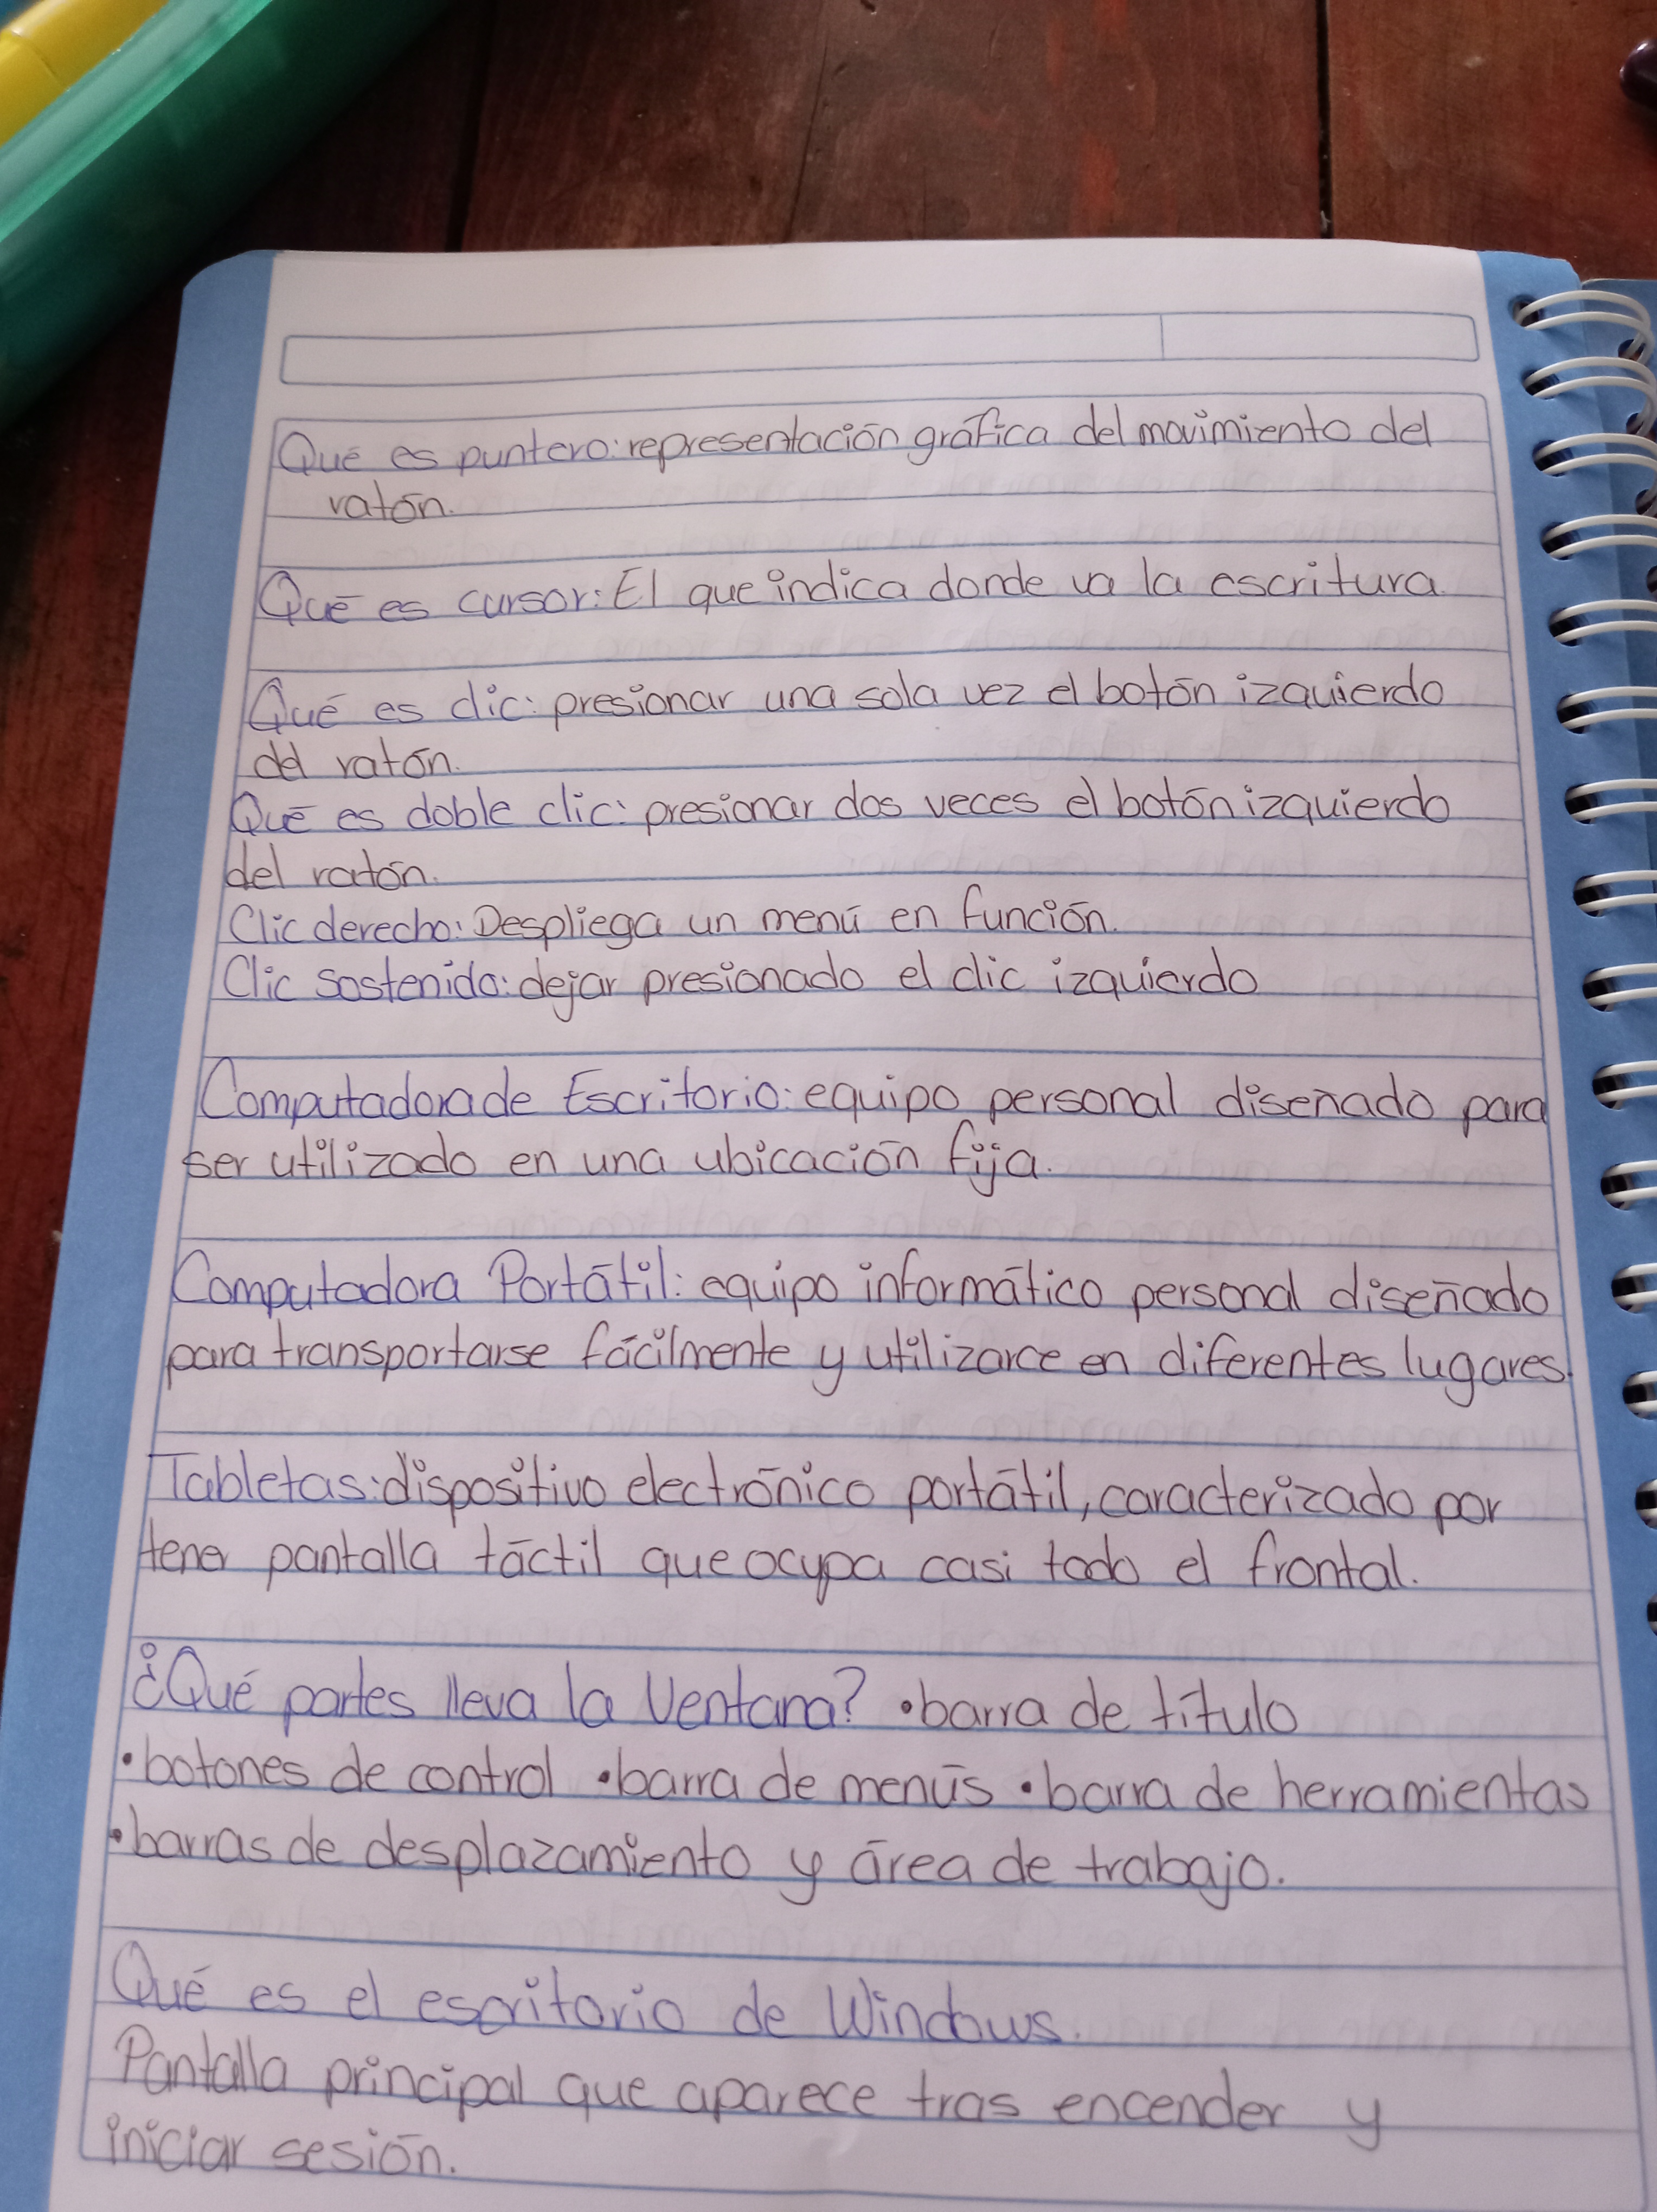 Qué es puntero: representación gráfica del movimiento del
ratón.
Qué es cursor: El que indica donde va la escritura.
Qué es clic: presionar una sola vez el botón izquierdo
del ratón.
Qué es doble clic: presionar dos veces el botón izquierdo
del ratón.
Clic derecho: Despliega un menú en función.
Clic sostenido: dejar presionado el clic izquierdo
Computadora de Escritorio: equipo personal diseñado para
ser utilizado en una ubicación fija.
Computadora Portátil: equipo informático personal diseñado
para transportarse fácilmente y utilizarce en diferentes lugares.
Tabletas: dispositivo electrónico portátil, caracterizado por
tener pantalla táctil que ocupa casi todo el frontal.
¿Qué partes lleva la Ventana? •barra de título
•botones de control •barra de menús •barra de herramientas
•barras de desplazamiento y área de trabajo.
Qué es el escritorio de Windows.
Pantalla principal que aparece tras encender y
iniciar sesión.